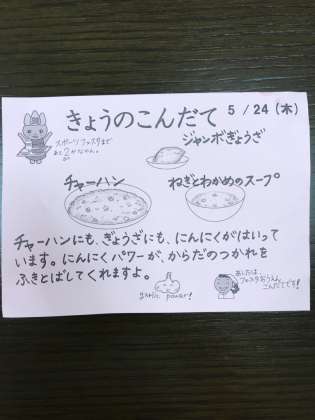 きょうのこんだて 5/24(木)
スポーツフェスタまで
あと2日
ジャンボぎょうざ
チャーハン
ねぎとわかめのスープ
チャーハンにも、ぎょうざにも、にんにくがはいって
います。にんにくパワーが、からだのつかれを
ふきとばしてくれますよ。
garlic power!
あしたは、
フェスタおうえん
こんだてです!